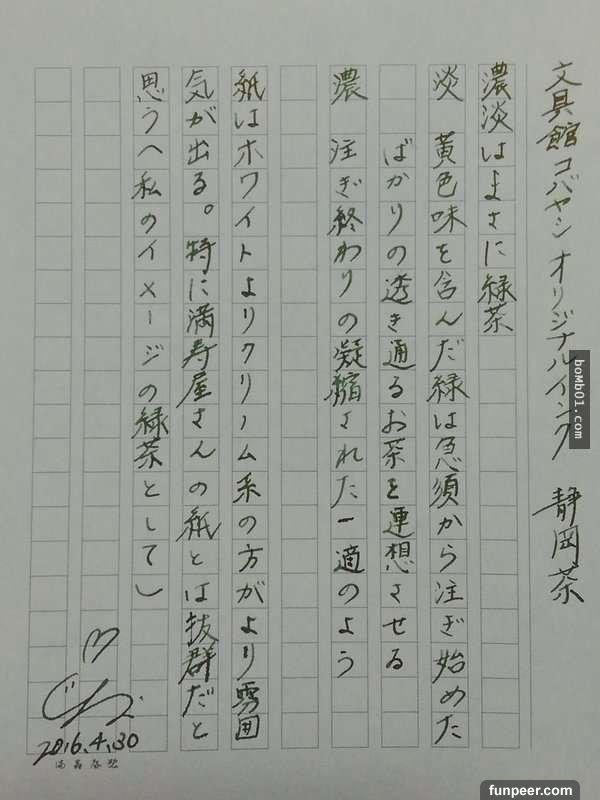 文具館コバヤシ オリジナルインク 静岡茶
濃淡はまさに緑茶
淡 黄色味を含んだ緑は急須から注ぎ始めた
ばかりの透き通るお茶を連想させる
濃 注ぎ終わりの凝縮された一適のよう
紙はホワイトよりクリーム系の方がより雰囲
気が出る。特に満寿屋さんの紙とは抜群だと
思う(私のイメージの緑茶として)
2016.4.30
bomb01.com
funpeer.com